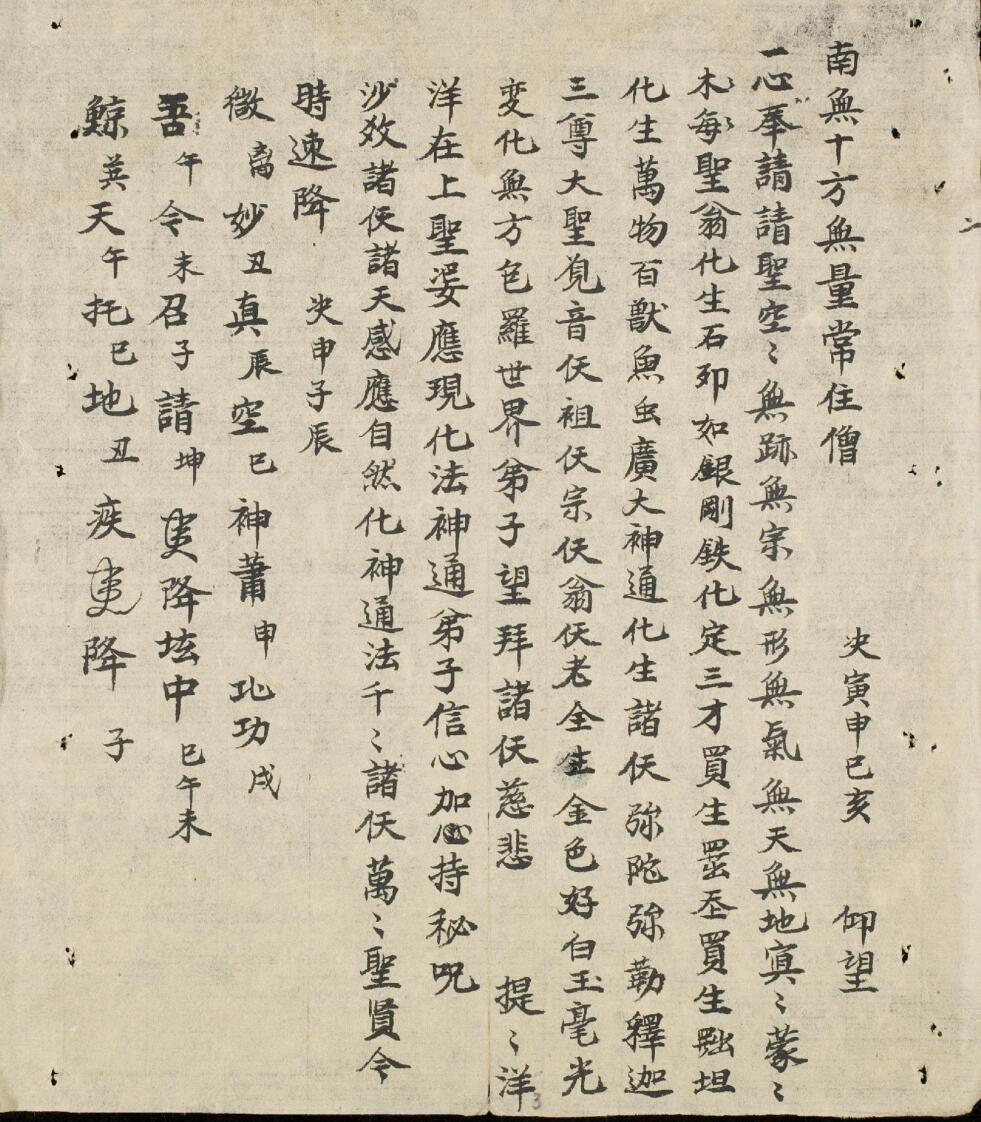 南無十方無量常住僧 决寅申巳亥 仰望
一心奉請請聖空〻無跡無宗無形無氣無天無地寘〻蒙〻
木每聖翁化生石卵如銀剛鉄化定三才買生𤳱丕買生坦
化生萬物百獸魚虫廣大神通化生諸仸弥陀弥勒釋迦
三尊大聖覓音仸祖仸宗仸翁仸老全生金色好白玉毫光
变化無方包羅世界弟子望拜諸仸慈悲 提〻洋
洋在上聖姿應現化法神通弟子信心加心持秘呪
沙效諸仸諸天感應自然化神通法千〻諸仸萬〻聖賢令
時速降 决申子辰
微离妙丑真辰空巳神蕭申功戌
吾午令未召子請坤降坛中巳午未
鯨英天午托巳地丑疾降子